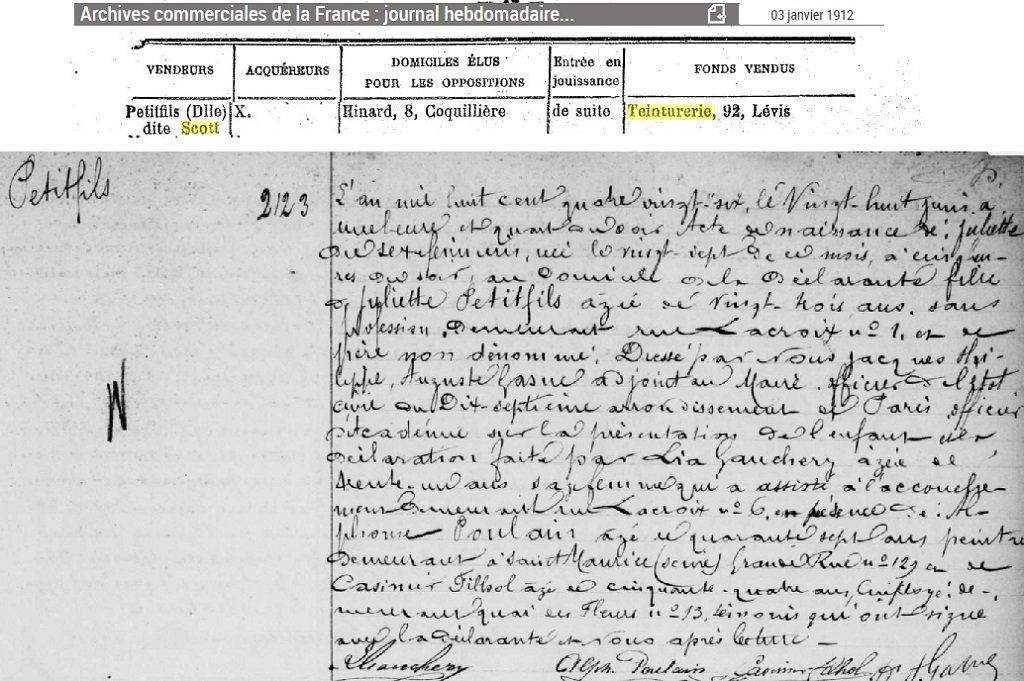 Archives commerciales de la France : journal hebdomadaire...
03 janvier 1912
VENDEURS
ACQUÉREURS
DOMICILES ÉLUS
POUR LES OPPOSITIONS
Entrée en
jouissance
FONDS VENDUS
Petitfils (Dlle)
dite Scott
X.
Hinard, 8, Coquillière
de suite
Teinturerie, 92, Lévis
Petitfils
2123
N
L'an mil huit cent quatre vingt-six, le Vingt-huit juin à
une heure et quart du soir Acte de naissance de: Juliette
du sexe féminin, née le vingt sept de ce mois, à cinq heu-
res du soir, au Domicile de la Déclarante fille
de Juliette Petitfils âgée de vingt trois ans. sans
profession. Demeurant rue Lacroix nº 1, et de
père non dénommé. Dressé par Nous Jacques Phi-
lippe, Auguste adjoint au Maire, officier de l'Etat
civil du Dix-septième arrondissement de Paris, officier
d'Académie sur la présentation de l'enfant et la
déclaration faite par Lia Gauchery âgée de
trente-un ans sagefemme qui a assisté à l'accouche-
ment Demeurant rue Lacroix nº 6, en présence de: Al-
phonse Poulain âgé de quarante sept ans peintre
Demeurant à Saint Maurice (Seine) Grande Rue nº 129 et de
Casimir Filhol âgé de cinquante-quatre ans, Employé: de-
meurant quai des Fleurs nº 13, témoins qui ont signé
avec la déclarante et Nous après lecture —
L Gauchery
Alph. Poulain
Casimir Filhol